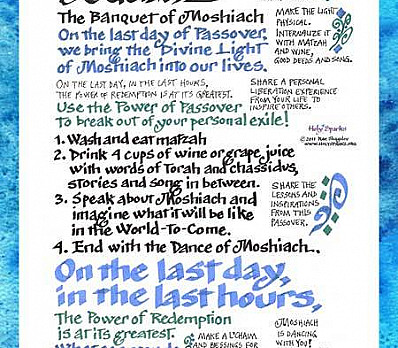 The Banquet of Moshiach
On the last day of Passover,
we bring the Divine Light
of Moshiach into our lives.
MAKE THE LIGHT
PHYSICAL.
INTERNALIZE IT
WITH MATZAH
AND WINE,
GOOD DEEDS AND SONG.
ON THE LAST DAY, IN THE LAST HOURS,
THE POWER OF REDEMPTION IS AT ITS GREATEST.
Use the Power of Passover
to break out of your personal exile!
SHARE A PERSONAL
LIBERATION EXPERIENCE
FROM YOUR LIFE TO
INSPIRE OTHERS.
Holy Sparks
1. Wash and eat matzah
2. Drink 4 cups of wine or grape juice
with words of Torah and chassidus,
stories and song in between.
3. Speak about Moshiach and
imagine what it will be like
in the World-To-Come.
4. End with the Dance of Moshiach...
SHARE THE
LESSONS AND
INSPIRATIONS
FROM THIS
PASSOVER.
On the last day,
in the last hours,
The Power of Redemption
is at its greatest.
MAKE A L'CHAIM
AND BLESSINGS FOR
MOSHIACH
IS DANCING
WITH YOU!